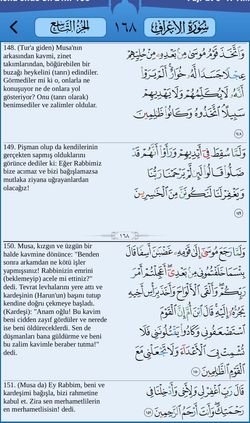 الجزء التاسع
١٦٨
سورة الأعراف
148. (Tur'a giden) Musa'nın
arkasından kavmi, zinet
takımlarından, böğürebilen bir
buzağı heykelini (tanrı) edindiler.
Görmediler mi ki o, onlarla ne
konuşuyor ne de onlara yol
gösteriyor? Onu (tanrı olarak)
benimsediler ve zalimler oldular.
وَاتَّخَذَ قَوْمُ مُوسَى مِنْ بَعْدِهِ مِنْ حُلِيِّهِمْ
عِجْلًا جَسَدًا لَهُ خُوَارٌ أَلَمْ يَرَوْا
أَنَّهُ لَا يُكَلِّمُهُمْ وَلَا يَهْدِيهِمْ
سَبِيلًا اتَّخَذُوهُ وَكَانُوا ظَالِمِينَ
١٤٨
149. Pişman olup da kendilerinin
gerçekten sapmış olduklarını
görünce dediler ki: Eğer Rabbimiz
bize acımaz ve bizi bağışlamazsa
mutlaka ziyana uğrayanlardan
olacağız!
وَلَمَّا سُقِطَ فِي أَيْدِيهِمْ وَرَأَوْا أَنَّهُمْ قَدْ
ضَلُّوا قَالُوا لَئِنْ لَمْ يَرْحَمْنَا رَبُّنَا
وَيَغْفِرْ لَنَا لَنَكُونَنَّ مِنَ الْخَاسِرِينَ
١٤٩
١٦٨
150. Musa, kızgın ve üzgün bir
halde kavmine dönünce: "Benden
sonra arkamdan ne kötü işler
yapmışsınız! Rabbinizin emrini
(beklemeyip) acele mi ettiniz?"
dedi. Tevrat levhalarını yere attı ve
kardeşinin (Harun'un) başını tutup
kendine doğru çekmeye başladı.
(Kardeşi): "Anam oğlu! Bu kavim
beni cidden zayıf gördüler ve nerede
ise beni öldüreceklerdi. Sen de
düşmanları bana güldürme ve beni
bu zalim kavimle beraber tutma!"
dedi.
وَلَمَّا رَجَعَ مُوسَى إِلَى قَوْمِهِ غَضْبَانَ أَسِفًا قَالَ
بِئْسَمَا خَلَفْتُمُونِي مِنْ بَعْدِي أَعَجِلْتُمْ أَمْرَ
رَبِّكُمْ وَأَلْقَى الْأَلْوَاحَ وَأَخَذَ بِرَأْسِ أَخِيهِ
يَجُرُّهُ إِلَيْهِ قَالَ ابْنَ أُمَّ إِنَّ الْقَوْمَ
اسْتَضْعَفُونِي وَكَادُوا يَقْتُلُونَنِي فَلَا
تُشْمِتْ بِيَ الْأَعْدَاءَ وَلَا تَجْعَلْنِي مَعَ
الْقَوْمِ الظَّالِمِينَ ١٥٠
151. (Musa da) Ey Rabbim, beni ve
kardeşimi bağışla, bizi rahmetine
kabul et. Zira sen merhametlilerin
en merhametlisisin! dedi.
قَالَ رَبِّ اغْفِرْ لِي وَلِأَخِي وَأَدْخِلْنَا فِي
رَحْمَتِكَ وَأَنْتَ أَرْحَمُ الرَّاحِمِينَ ١٥١